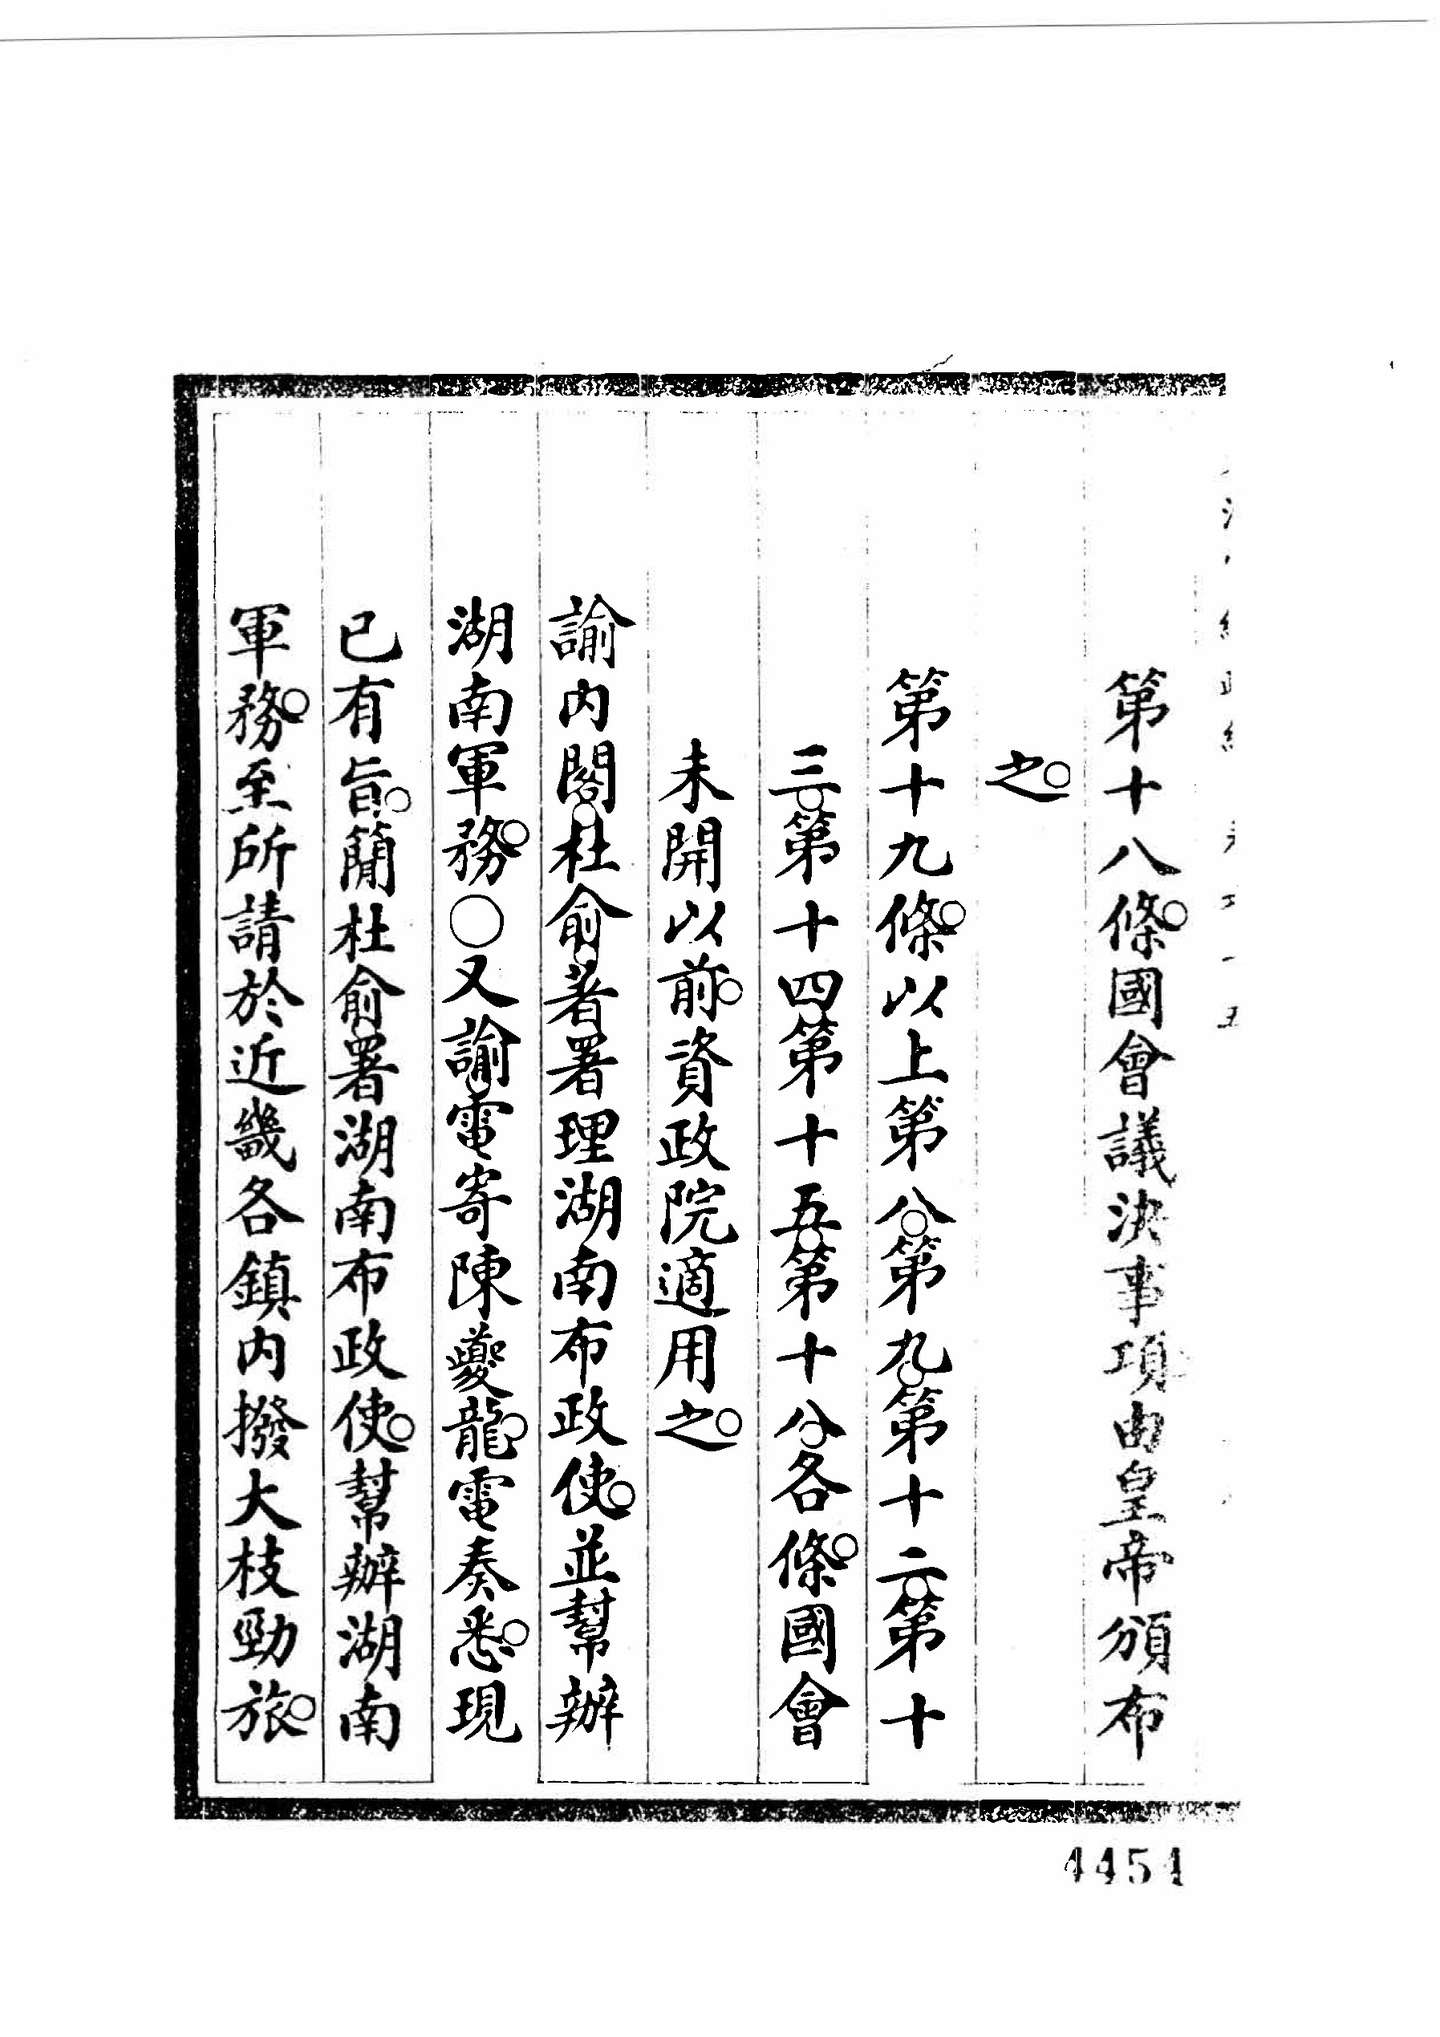 第十八條。國會議決事項。由皇帝頒布
之。
第十九條。以上第八。第九。第十二。第十
三。第十四。第十五。第十八。各條。國會
未開以前。資政院適用之。
諭內閣。杜俞。著署理湖南布政使。並幫辦
湖南軍務。○又諭。電寄陳夔龍。電奏悉。現
已有旨。簡杜俞。署湖南布政使。幫辦湖南
軍務。至所請於近畿各鎮內撥大枝勁旅。
4454